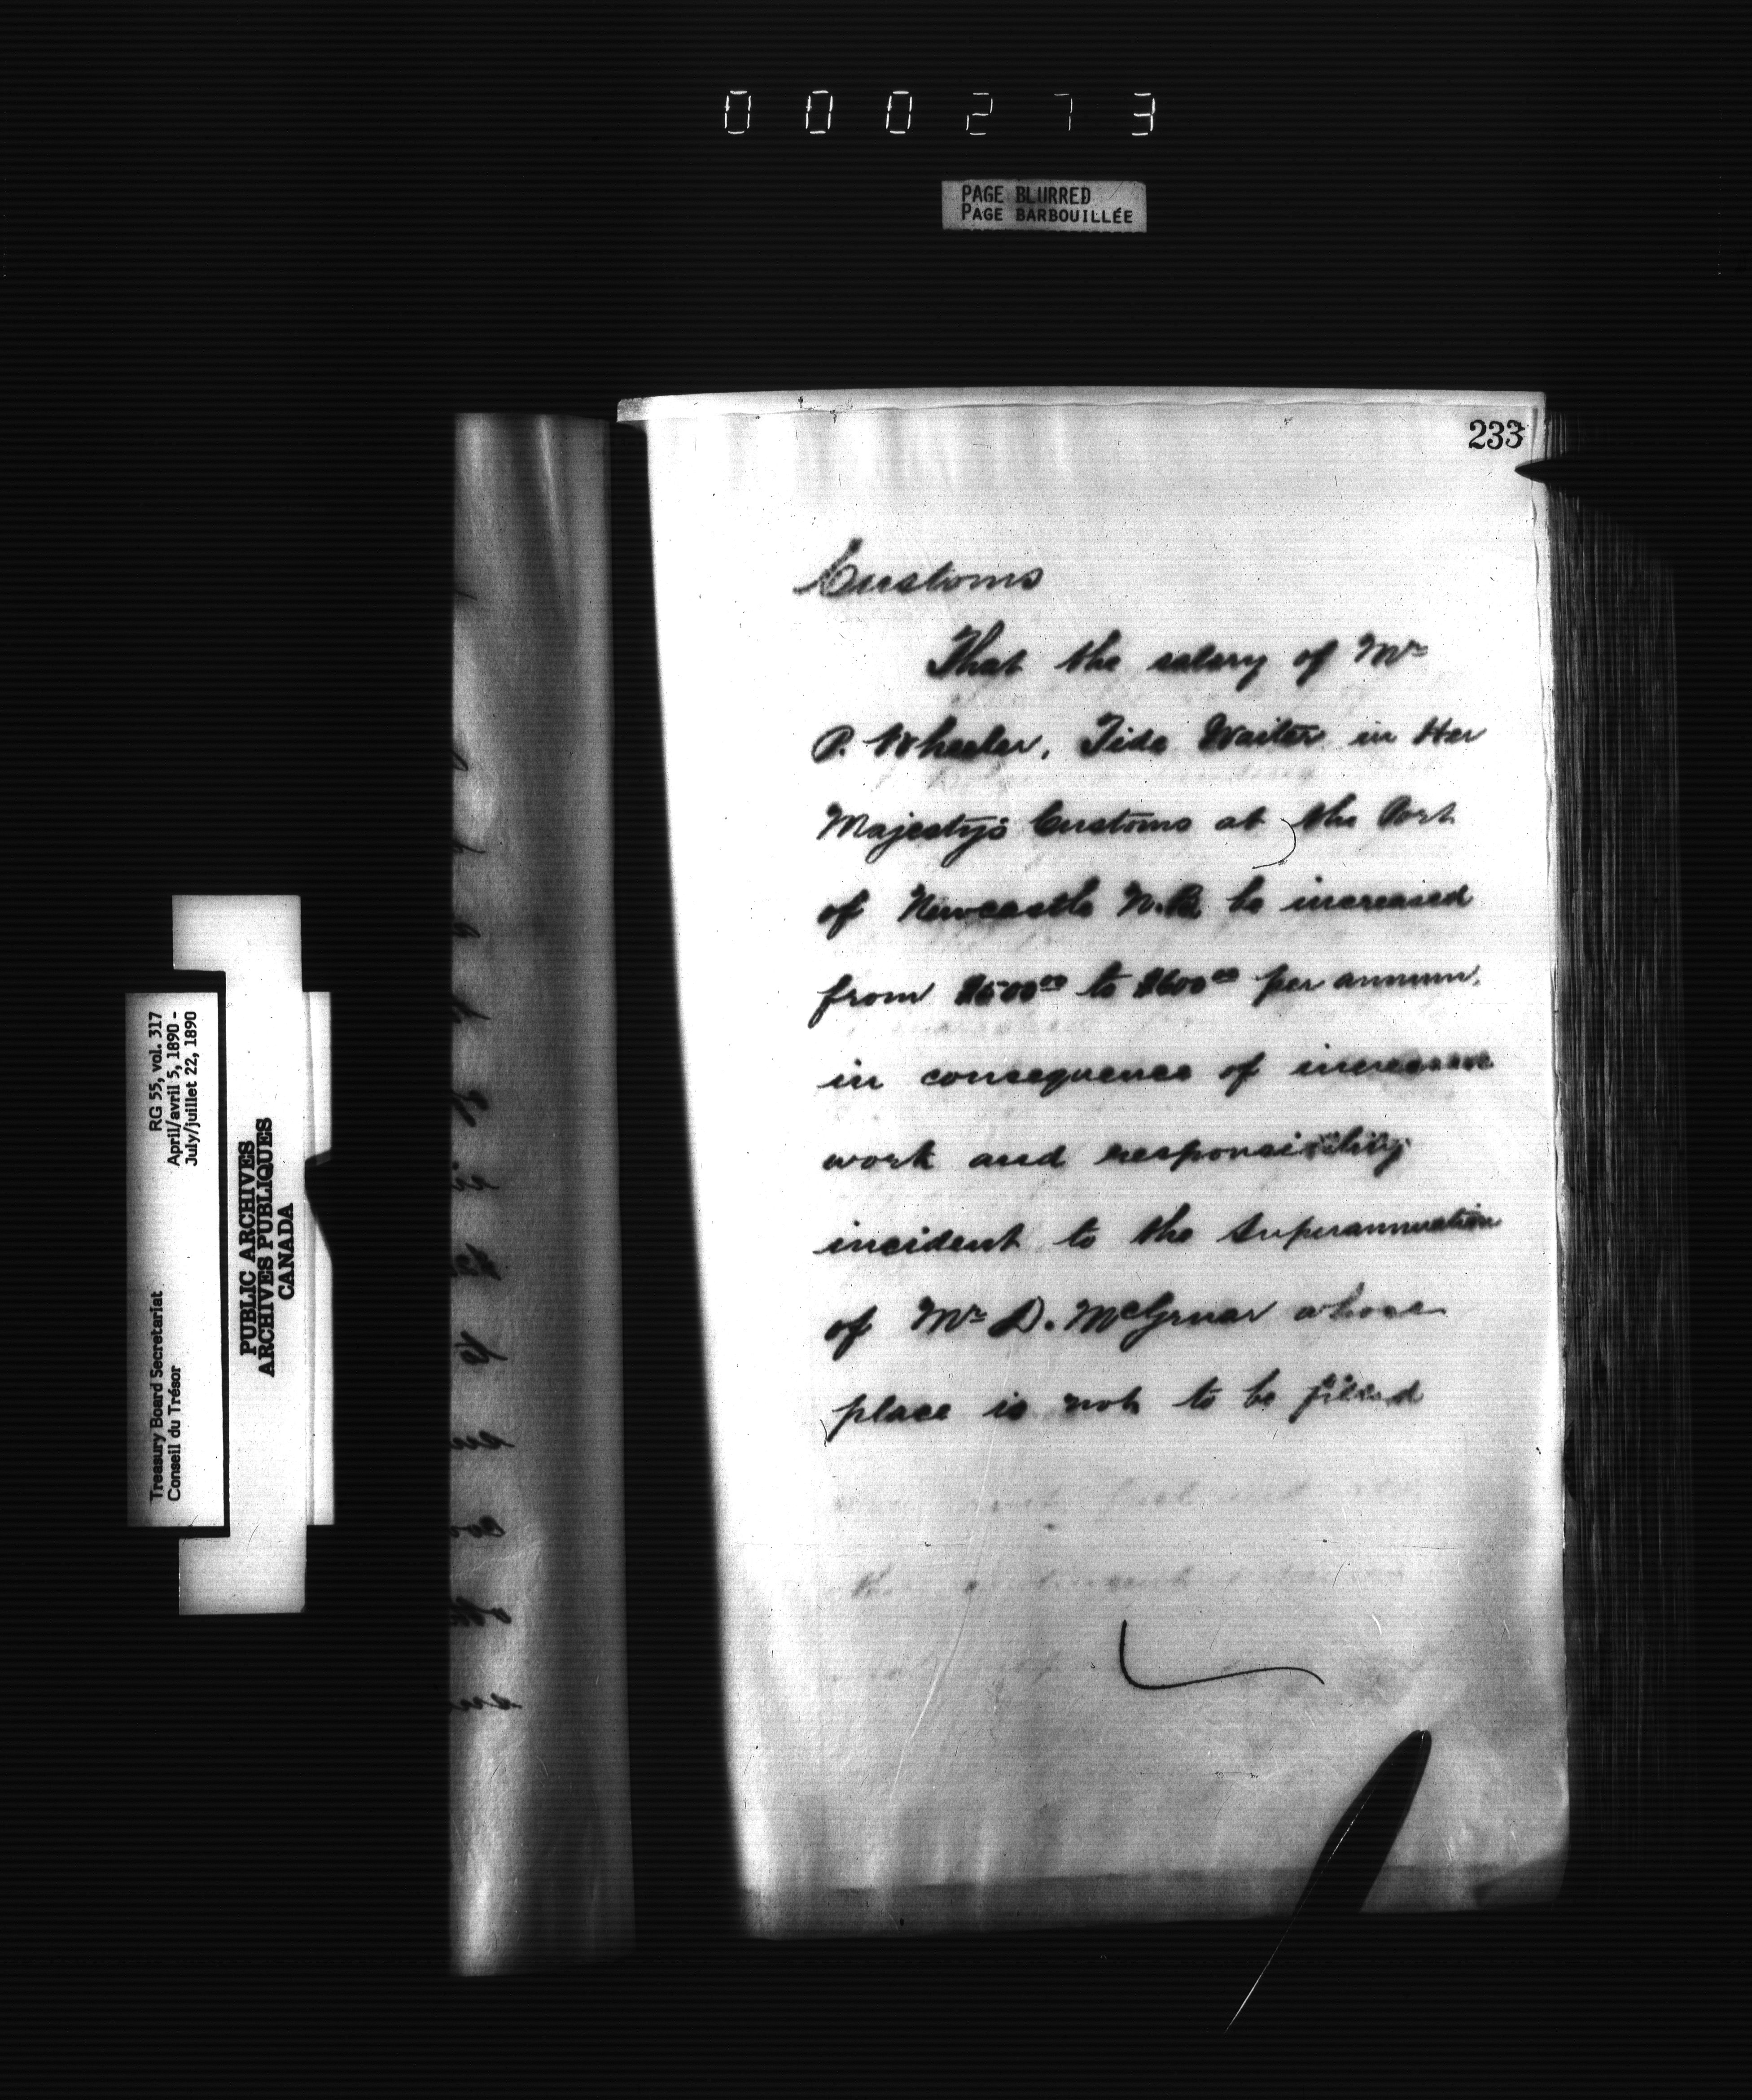 000273
PAGE BLURRED
PAGE BARBOUILLÉE
233
Customs
That the salary of Mr
P. Wheeler, Tide Waiter in Her
Majesty's Customs at the Port
of Newcastle N.B. be increased
from $500.00 to $600.00 per annum,
in consequence of increase
work and responsibility
incident to the Superannuation
of Mr D. McGruar whose
place is not to be filled
Treasury Board Secretariat RG 55, vol. 317
Conseil du Trésor April/avril 5, 1890 -
July/juillet 22, 1890
PUBLIC ARCHIVES
ARCHIVES PUBLIQUES
CANADA